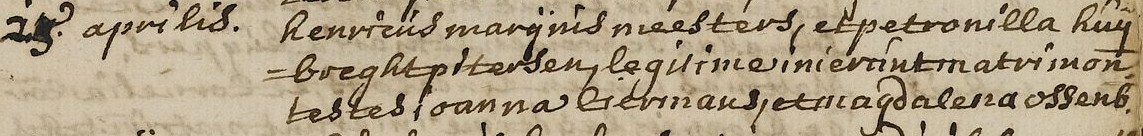 25. aprilis. henricus marijnis meesters, et petronilla huij
=breght pitersen, legitime inierunt matrimon
testes ioanna liermans, et magdalena ossenb.